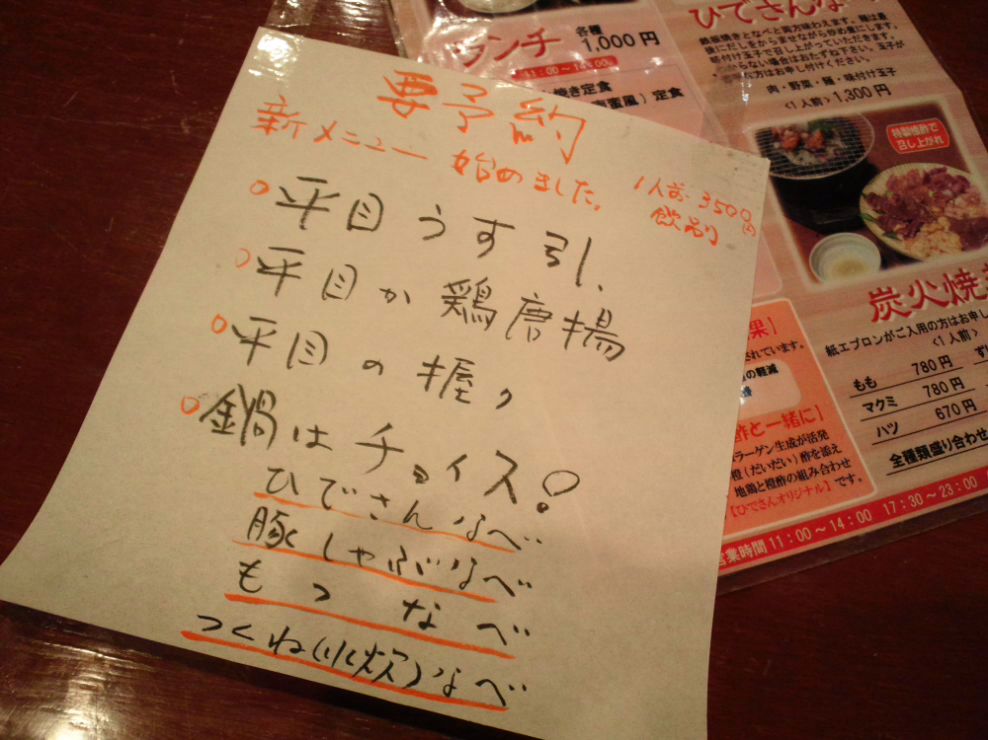 要予約
新メニュー始めました。
1人前 3500円
飲別
平目うす引、
平目か鶏唐揚
平目の握り
鍋はチョイス!
ひでさんなべ
豚しゃぶなべ
もつなべ
つくね(水炊)なべ
ランチ 各種 1,000円
11:00~14:00
焼き定食
風)定食
ひでさんな
肉・野菜・麺・味付け玉子
<1人前>1,300円
特製橙酢で
召し上がれ
炭火焼
紙エプロンがご入用の方はお申し
<1人前>
もも 780円
マクミ 780円
ハツ 670円
全種類盛り合わせ
果】
されています。
の軽減
酢と一緒に】
ラーゲン生成が活発
橙(だいだい)酢を添え
地鶏と橙酢の組み合わせ
【ひでさんオリジナル】です。
営業時間 11:00~14:00 17:30~23:00